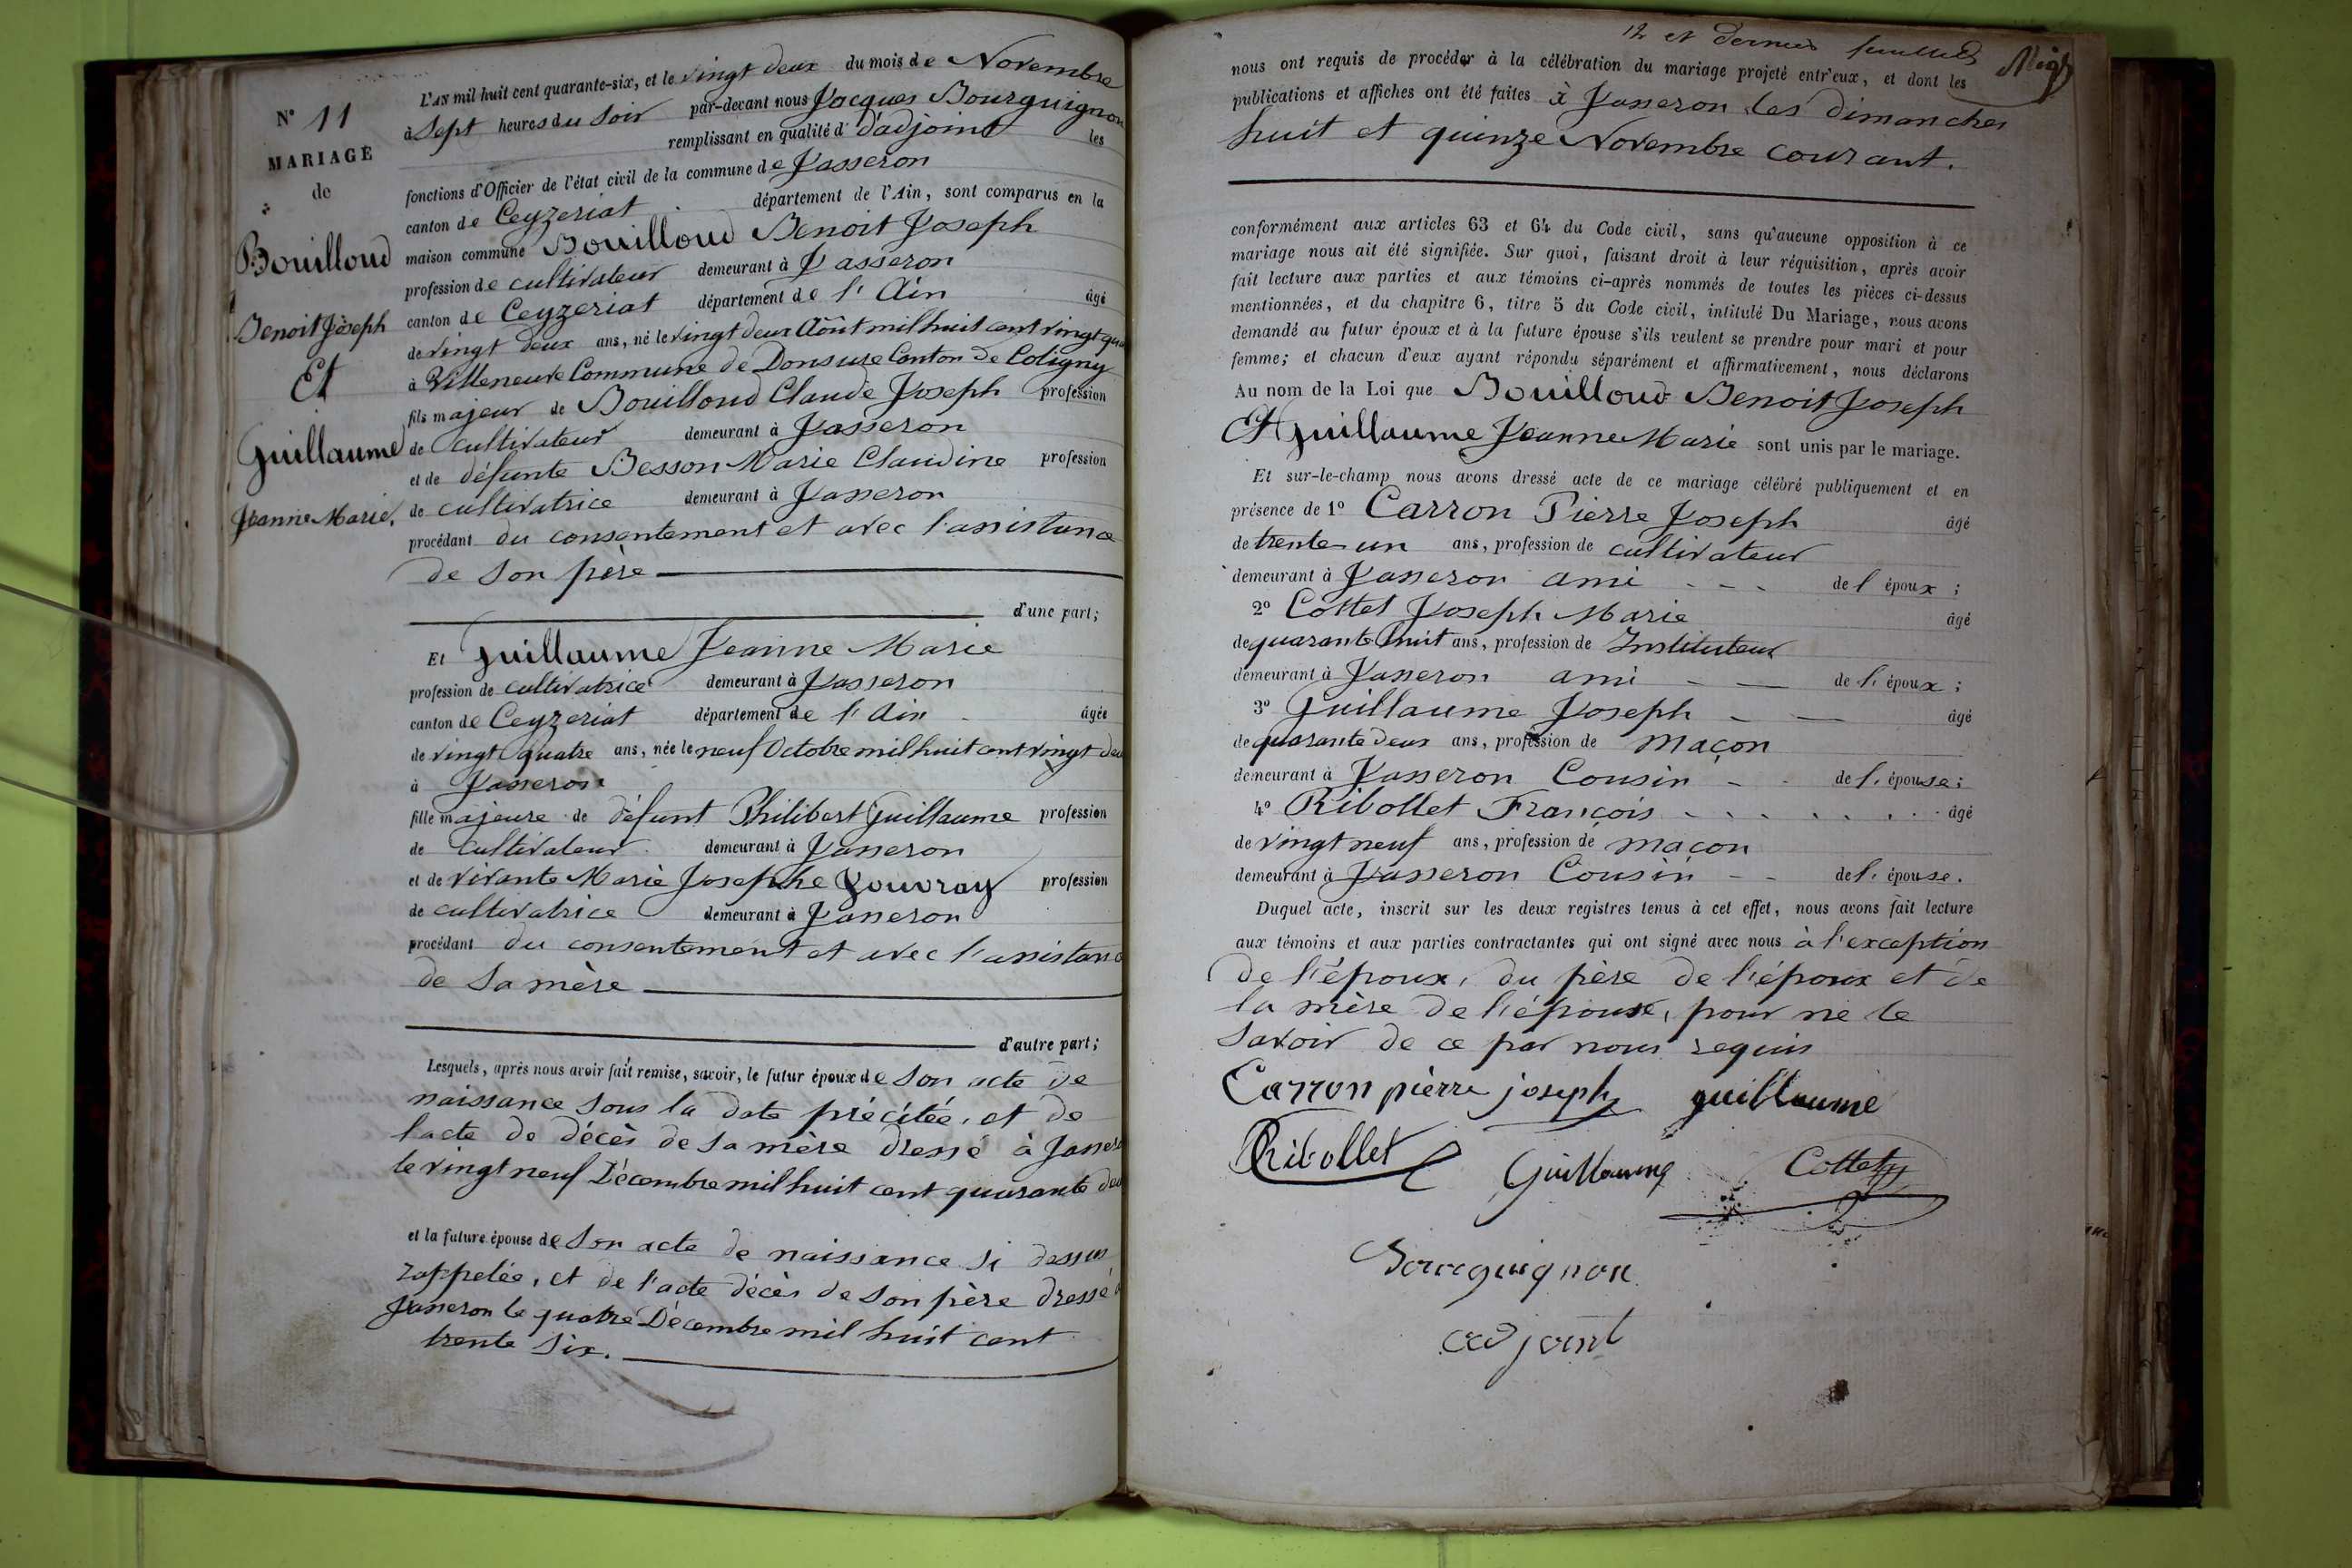 N° 11
MARIAGE
de
Bouilloud
Benoit Joseph
Et
Guillaume
Jeanne Marie,
L'AN mil huit cent quarante-six, et le vingt deux du mois de Novembre
à Sept heures du Soir par-devant nous Jacques Bourguignon
remplissant en qualité d' d'adjoint les
fonctions d'Officier de l'état civil de la commune de Jasseron
canton de Ceyzeriat département de l'Ain, sont comparus en la
maison commune Bouilloud Benoit Joseph
profession de cultivateur demeurant à Jasseron
canton de Ceyzeriat département de l'Ain âgé
de vingt deux ans, né le vingt deux Août mil huit cent vingt
à Villeneuve Commune de Donsure Canton de Coligny
fils majeur de Bouilloud Claude Joseph profession
de cultivateur demeurant à Jasseron
et de défunte Besson Marie Claudine profession
de cultivatrice demeurant à Jasseron
procédant du consentement et avec l'assistance
de Son père
d'une part;
Et Guillaume Jeanne Marie
profession de cultivatrice demeurant à Jasseron
canton de Ceyzeriat département de l'Ain âgée
de vingt quatre ans, née le neuf Octobre mil huit cent vingt
à Jasseron
fille majeure de défunt Philibert Guillaume profession
de cultivateur demeurant à Jasseron
et de vivante Marie Josephe Jouvray profession
de cultivatrice demeurant à Jasseron
procédant du consentement et avec l'assistance
de Sa mère
d'autre part;
Lesquels, après nous avoir fait remise, savoir, le futur époux de Son acte de
naissance Sous la date précitée, et de
l'acte de décès de Sa mère dressé à Jasseron
le vingt neuf Décembre mil huit cent quarante
et la future épouse de Son acte de naissance Si dessus
rappelée, et de l'acte décès de Son père dressé à
Jasseron le quatre Décembre mil huit cent
trente Six.
12 et dernier feuillet
nous ont requis de procéder à la célébration du mariage projeté entr'eux, et dont les
publications et affiches ont été faites à Jasseron les dimanches
huit et quinze Novembre courant.
conformément aux articles 63 et 64 du Code civil, sans qu'aucune opposition à ce
mariage nous ait été signifiée. Sur quoi, faisant droit à leur réquisition, après avoir
fait lecture aux parties et aux témoins ci-après nommés de toutes les pièces ci-dessus
mentionnées, et du chapitre 6, titre 5 du Code civil, intitulé Du Mariage, nous avons
demandé au futur époux et à la future épouse s'ils veulent se prendre pour mari et pour
femme; et chacun d'eux ayant répondu séparément et affirmativement, nous déclarons
Au nom de la Loi que Bouilloud Benoit Joseph
Et Guillaume Jeanne Marie sont unis par le mariage.
Et sur-le-champ nous avons dressé acte de ce mariage célébré publiquement et en
présence de 1° Carron Pierre Joseph âgé
de trente un ans, profession de cultivateur
demeurant à Jasseron ami de l'époux;
2° Cottet Joseph Marie âgé
de quarante huit ans, profession de Instituteur
demeurant à Jasseron ami de l'époux;
3° Guillaume Joseph âgé
de quarante deux ans, profession de maçon
demeurant à Jasseron Cousin de l'épouse;
4° Ribollet François âgé
de vingt neuf ans, profession de maçon
demeurant à Jasseron Cousin de l'épouse.
Duquel acte, inscrit sur les deux registres tenus à cet effet, nous avons fait lecture
aux témoins et aux parties contractantes qui ont signé avec nous à l'exception
de l'époux, du père de l'époux et de
la mère de l'épouse, pour ne le
Savoir de ce par nous requis
Carron pierre joseph guillaume
Ribollet Guillaume Cottet
Bourguignon
adjoint